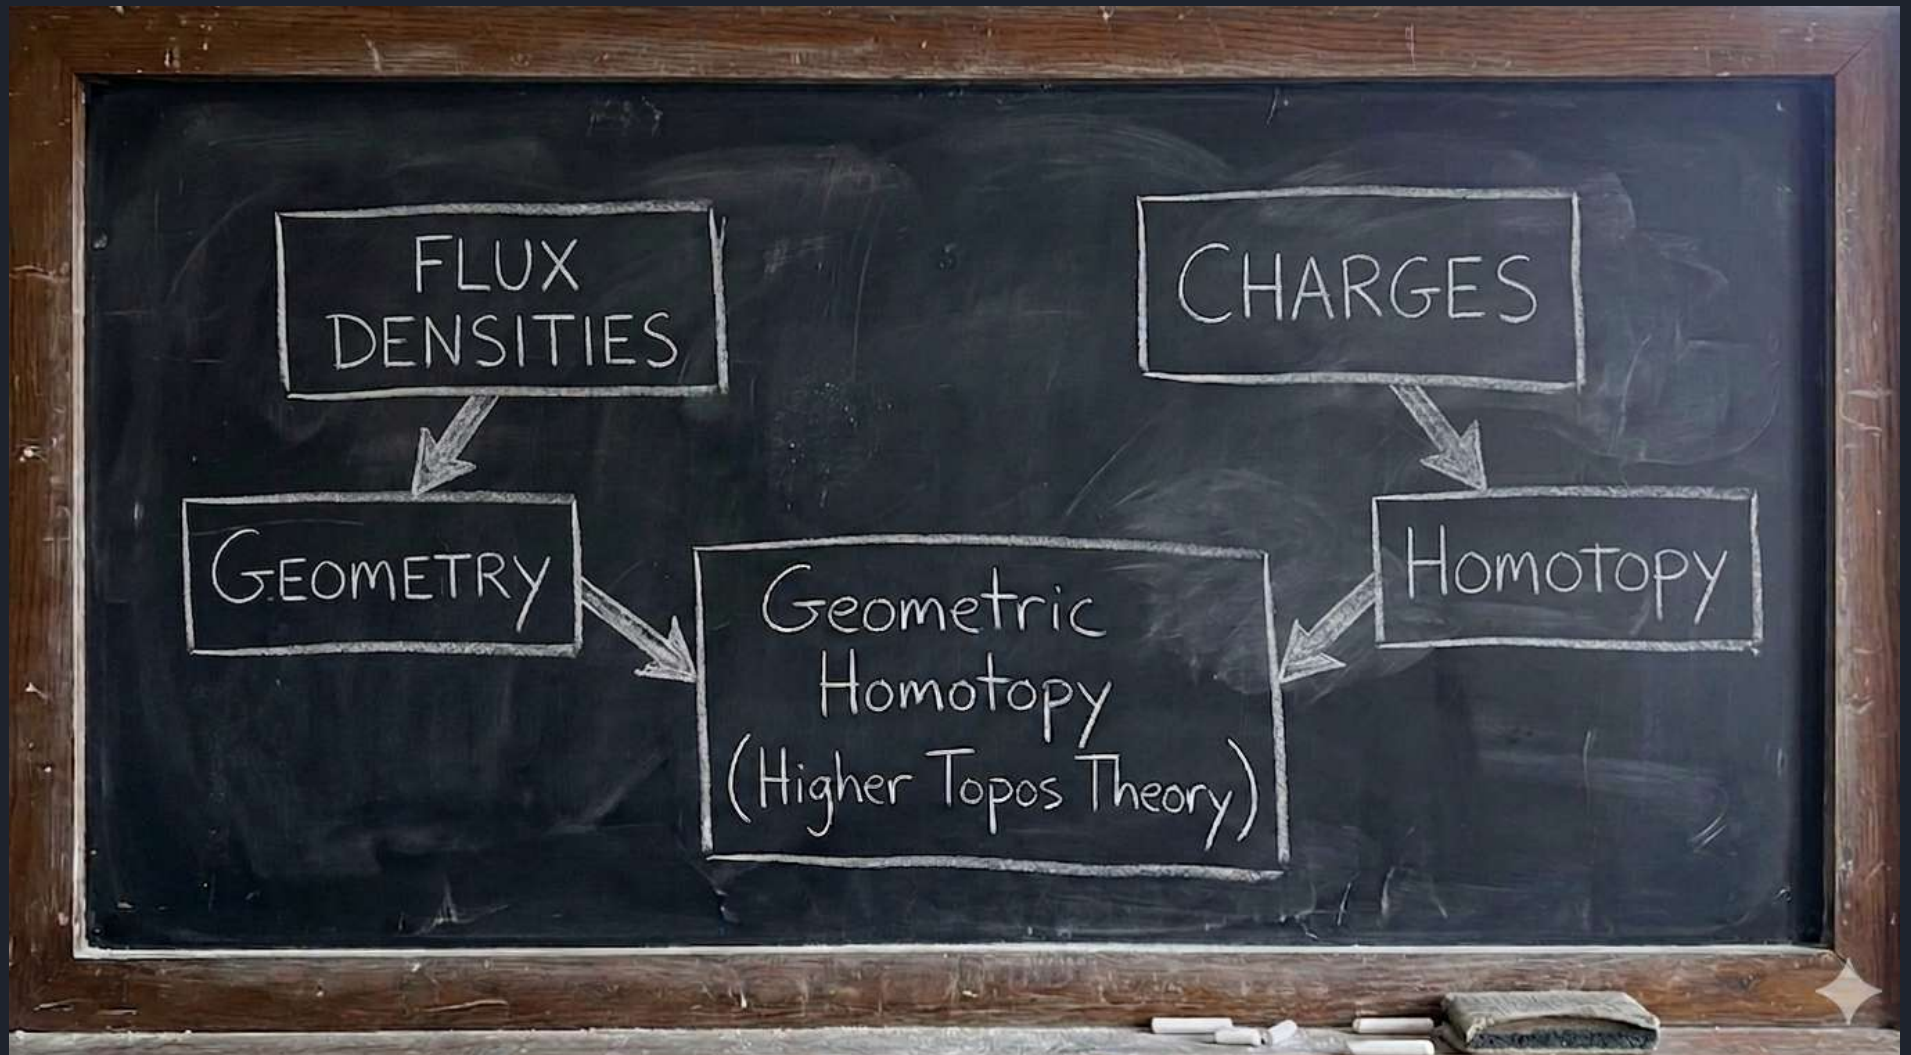 FLUX
DENSITIES
CHARGES
GEOMETRY
HOMOTOPY
Geometric
Homotopy
(Higher Topos Theory)